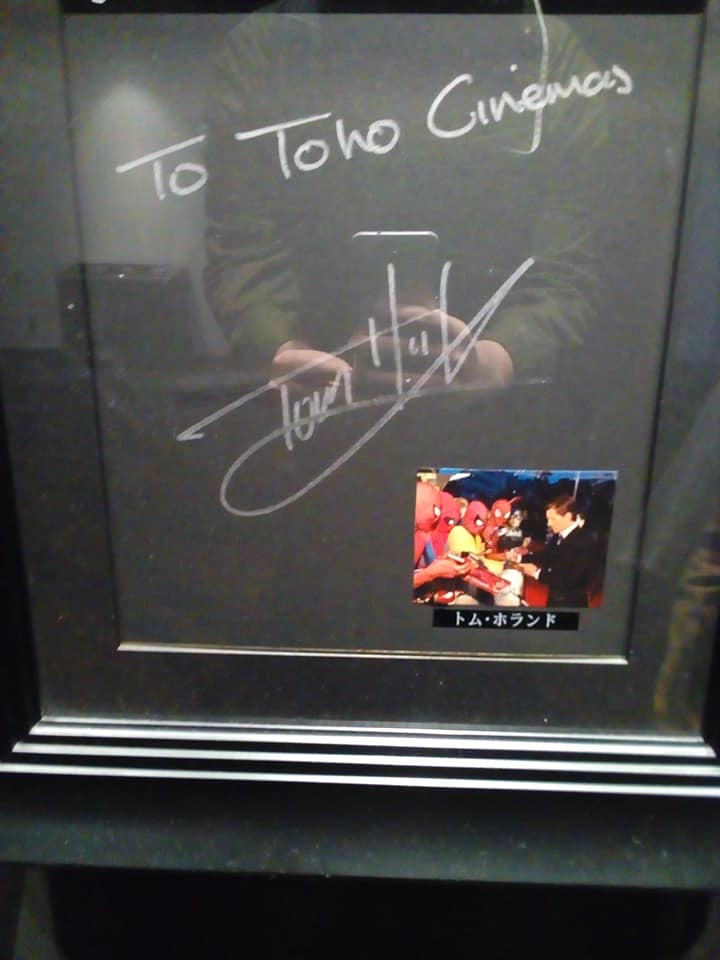 To Toho Cinemas
Tom Holl
トム・ホランド